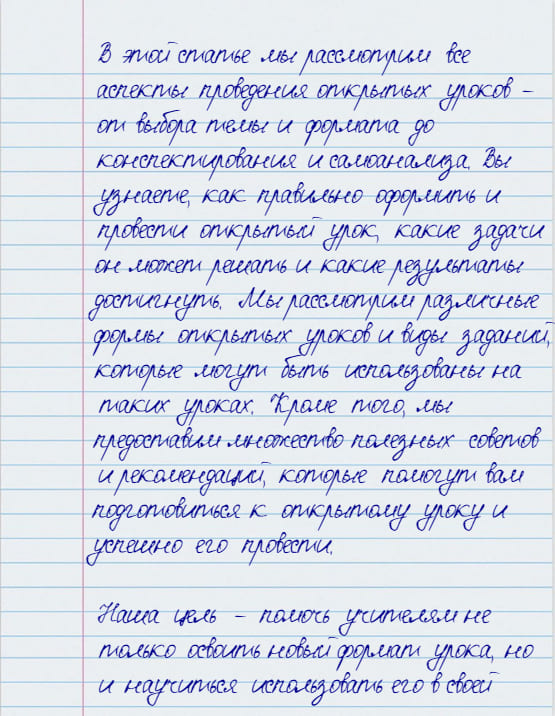 В этой статье мы рассмотрим все
аспекты проведения открытых уроков –
от выбора темы и формата до
конспектирования и самоанализа. Вы
узнаете, как правильно оформить и
провести открытый урок, какие задачи
он может решать и какие результаты
достигнуть. Мы рассмотрим различные
формы открытых уроков и виды заданий,
которые могут быть использованы на
таких уроках. Кроме того, мы
предоставим множество полезных советов
и рекомендаций, которые помогут вам
подготовиться к открытому уроку и
успешно его провести.

Наша цель – помочь учителям не
только освоить новый формат урока, но
и научиться использовать его в своей